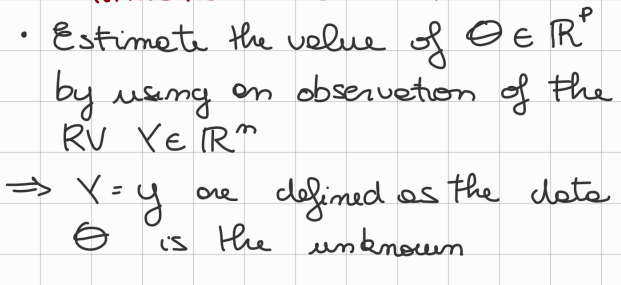 • Estimate the value of Θ ∈ ℝᵖ
by using an observation of the
RV Y ∈ ℝⁿ
⇒ Y = y are defined as the data
Θ is the unknown